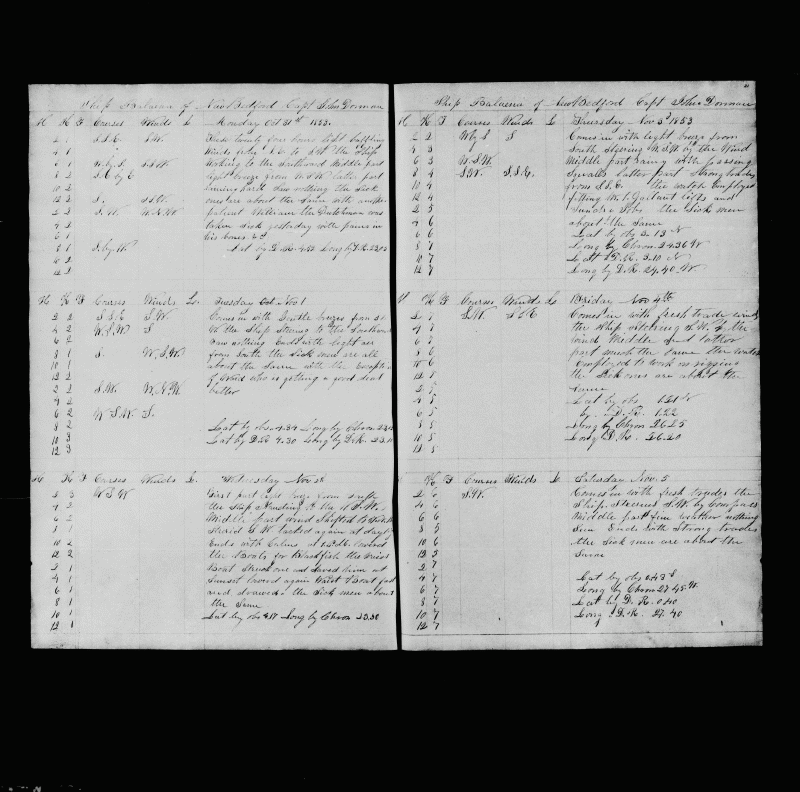 Ship Balaena of New Bedford Capt John Dorman
H K F Courses Winds L Monday Oct 31th 1853
2 1 S.S.E. S.W. These twenty four hours light baffling
4 1 Winds to S.W. the Ship
6 1 W.by S. S.S.W. Working to the Southward Middle part
8 2 S.E by E light breeze from latter part
10 2 the Sick
12 2 S. S.S.W. ones are about the Same with another
2 2 S.W. W.N.W. patient William the Dutchman was
4 1 taken Sick yesterday with pains in
6 1 his bones
8 1 S.by W. Lat by D.R. Long by D.R.
10 2
12 2
H K F Courses Winds L. Tuesday Nov 1
2 2 S.S.E S.W. Comes in with Gentle breezes from
4 2 W.S.W S the Ship Steering to the Southward
6 2 Saw nothing Ends with light air
8 1 S. W.S.W. from South the Sick men are all
10 1 about the Same with the Exception
12 2 of who is getting a good deal
2 2 S.W. W.N.W better
4 1
6 2 W.S.W S.
8 2 Lat by obs 4.34 Long by Chron
10 3 Lat by D.R 4.30 Long by D.R.
12 3
H K F Courses Winds L. Wednesday Nov 2d
2 3 W.S.W First part light breeze from
4 3 the Ship Standing to the W.S.W.
6 2 Middle part wind Shifted
8 1 tacked again at day
10 2 Ends with Calms at lowered
12 2 the Boats for Blackfish the Waist
2 1 Boat Struck one and Saved him at
4 1 Sunset lowered again Waist Boat fast
6 1 and drawed the Sick men about
8 1 the Same
10 1 Lat by obs Long by Chron
12 1
Ship Balaena of New Bedford Capt John Dorman
H K F Courses Winds L Thursday Nov 3d 1853
2 2 W.by S. S Comes in with light breeze from
4 3 South Steering W.S.W by the Wind
6 3 W.S.W. Middle part rainy with passing
8 4 S.W. S.S.E. Squalls latter part Strong breeze
10 4 from S.S.E. the watch Employed
12 4 fitting Gallant lifts and
2 5 Sundry Jobs the Sick men
4 6 about the Same
6 7 Lat by obs 3.13 N
8 7 Long by Chron 24.36 W
10 7 Latt D.R. 3.10 N
12 7 Long by D.R. 24.40 W
H K F Courses Winds L Friday Nov 4th
2 7 S.W. S.S.E Comes in with fresh trade wind
4 7 the Ship Steering S.W. by the
6 7 wind Middle and latter
8 6 part much the Same the watch
10 6 Employed to work on rigging
12 5 the Sick ones are about the
2 5 Same
4 5 Lat by obs 1.21 N
6 5 by D.R. 1.22
8 5 Long by Chron 26.25
10 5 Long D.R. 26.20
12 5
H K F Courses Winds L Saturday Nov. 5
2 6 S.W. Comes in with fresh trades the
4 6 Ship Steering S.W. by Compass
6 6 Middle part fine weather nothing
8 5 Seen Ends with Strong trades
10 6 the Sick men are about the
12 5 Same
2 7
4 8 Lat by obs 0.43 S
6 7 Long by Chron 27.45 W
8 7 Lat by D.R. 0.40
10 7 Long D.R. 27.40
12 7